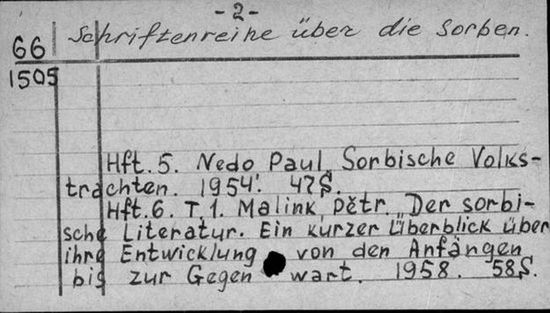 -2-
66 Schriftenreihe über die Sorben.
1505
Hft. 5. Nedo Paul Sorbische Volks-
trachten. 1954. 47S.
Hft. 6. T. 1. Malink, Pětr. Der sorbi-
sche Literatur. Ein kurzer Überblick über
ihre Entwicklung von den Anfängen
bis zur Gegen wart. 1958. 58S.